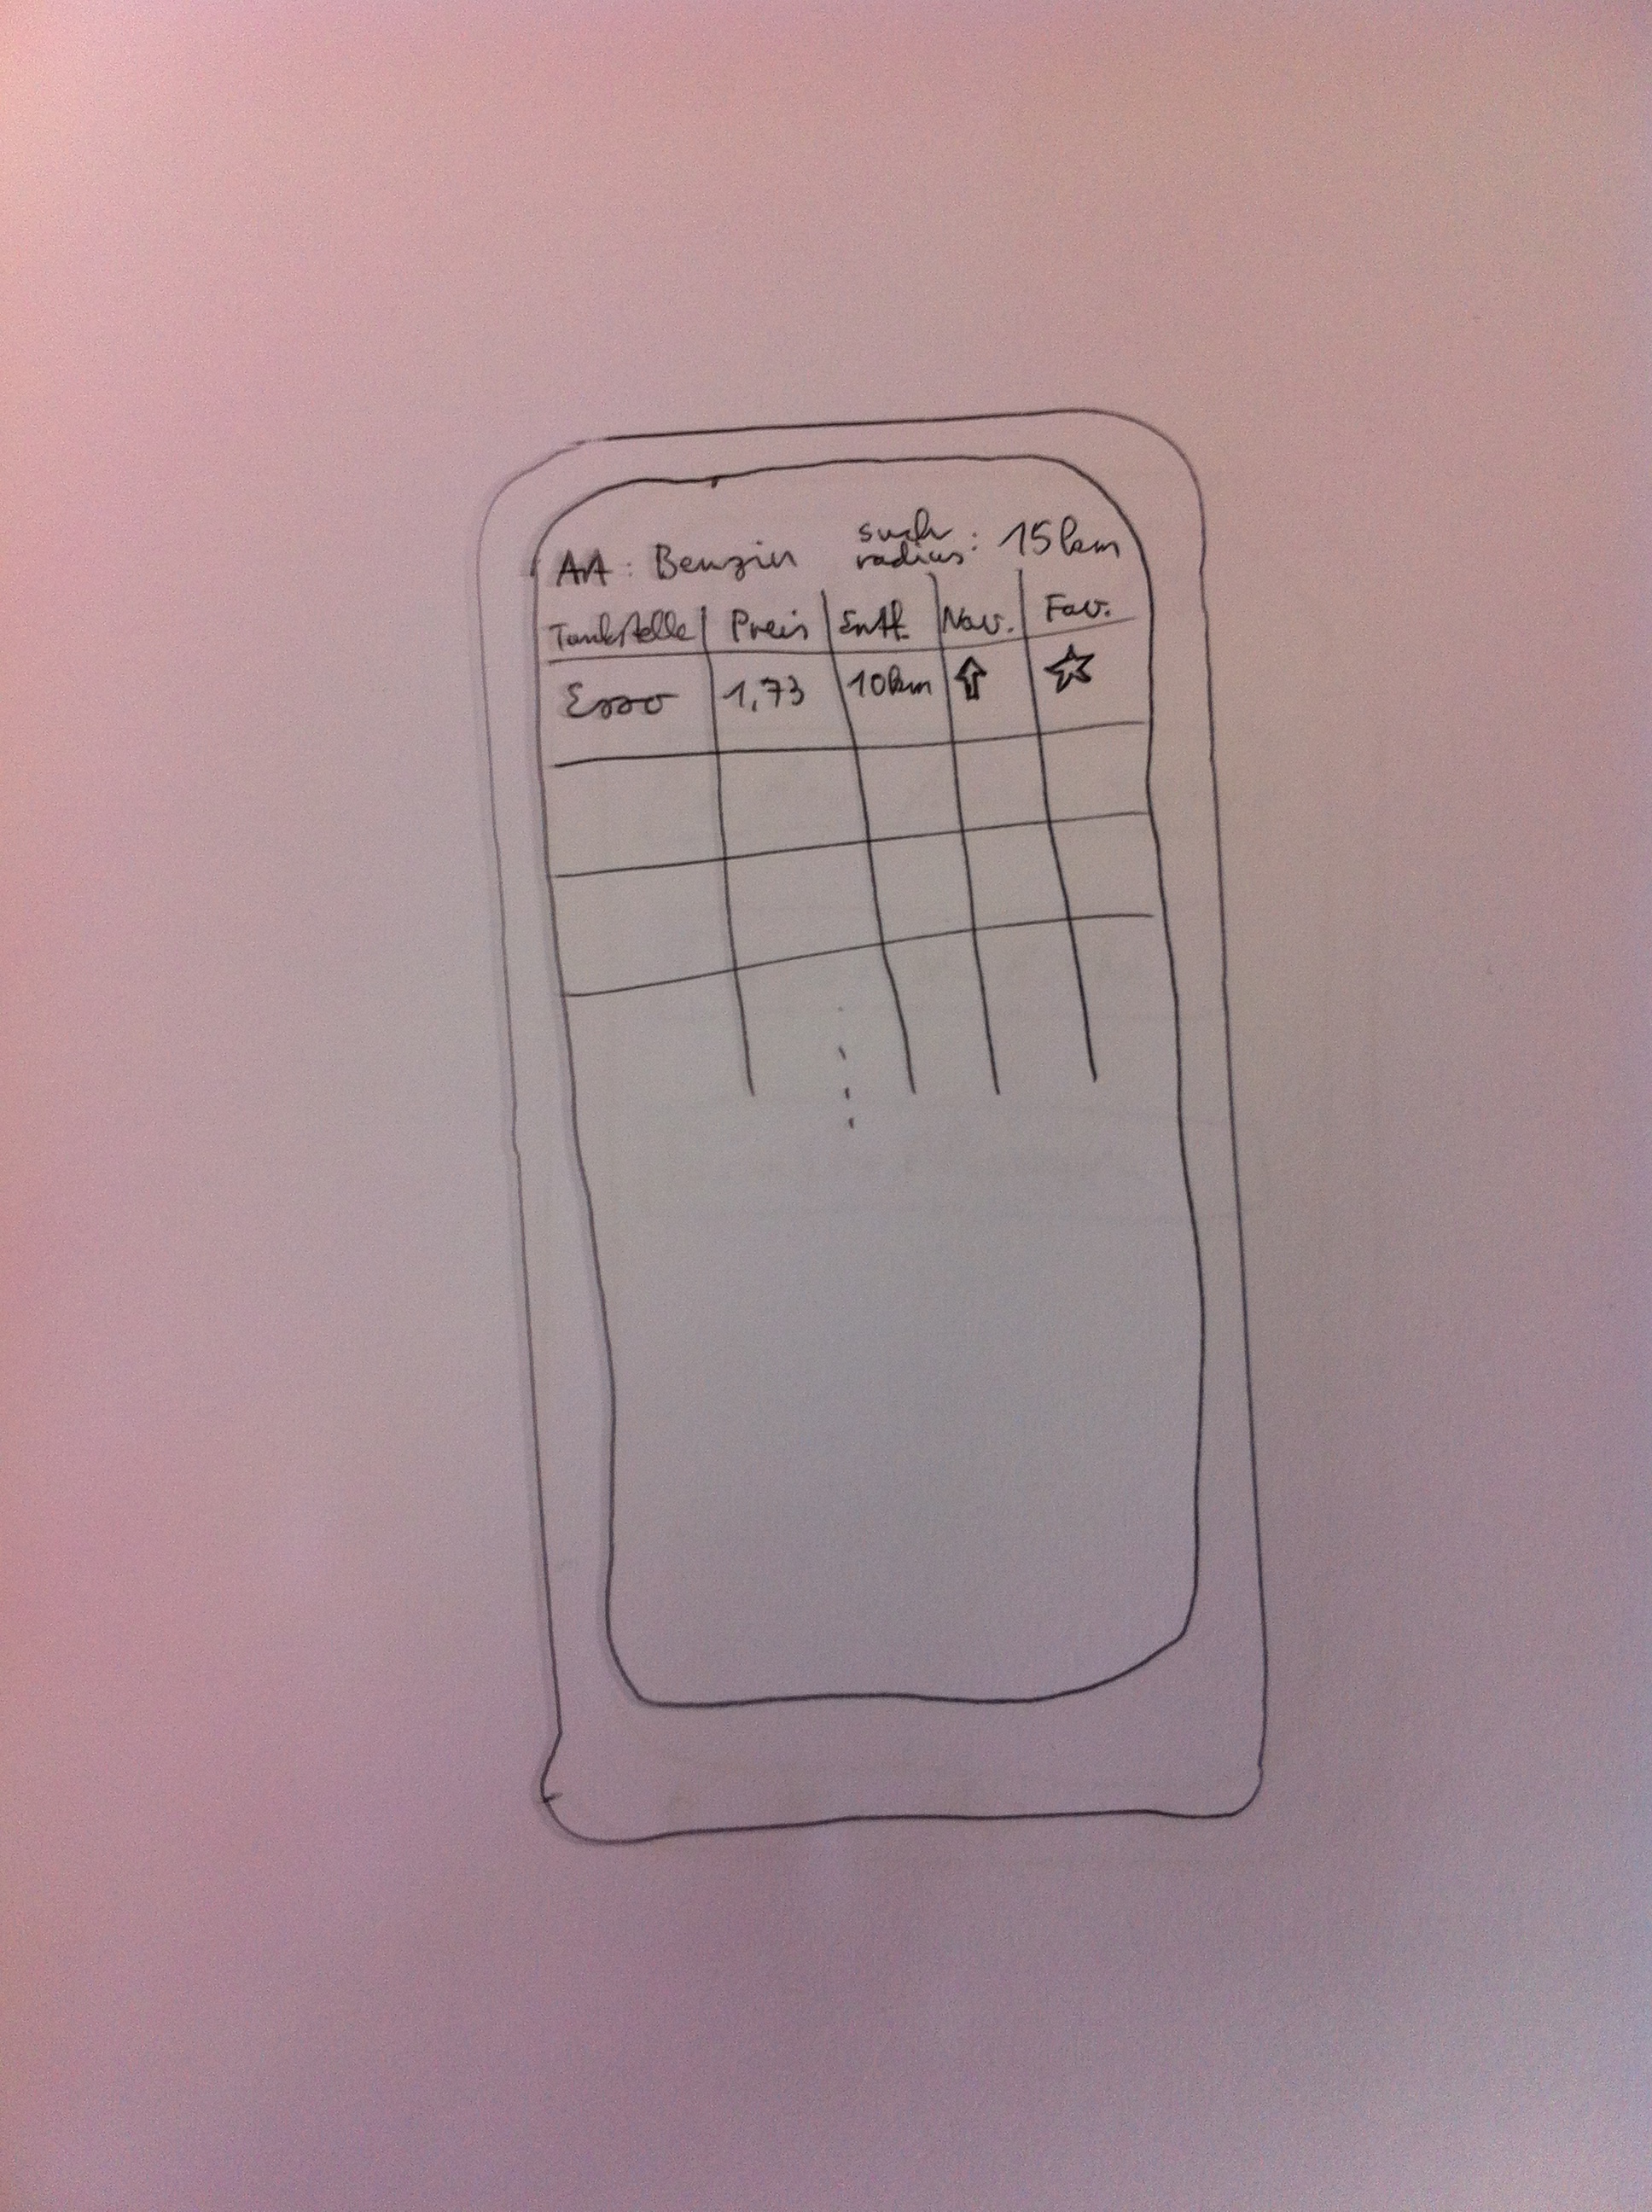 Art: Benzin such radius: 15km
Tankstelle Preis Entf. Nav. Fav.
Esso 1,73 10km